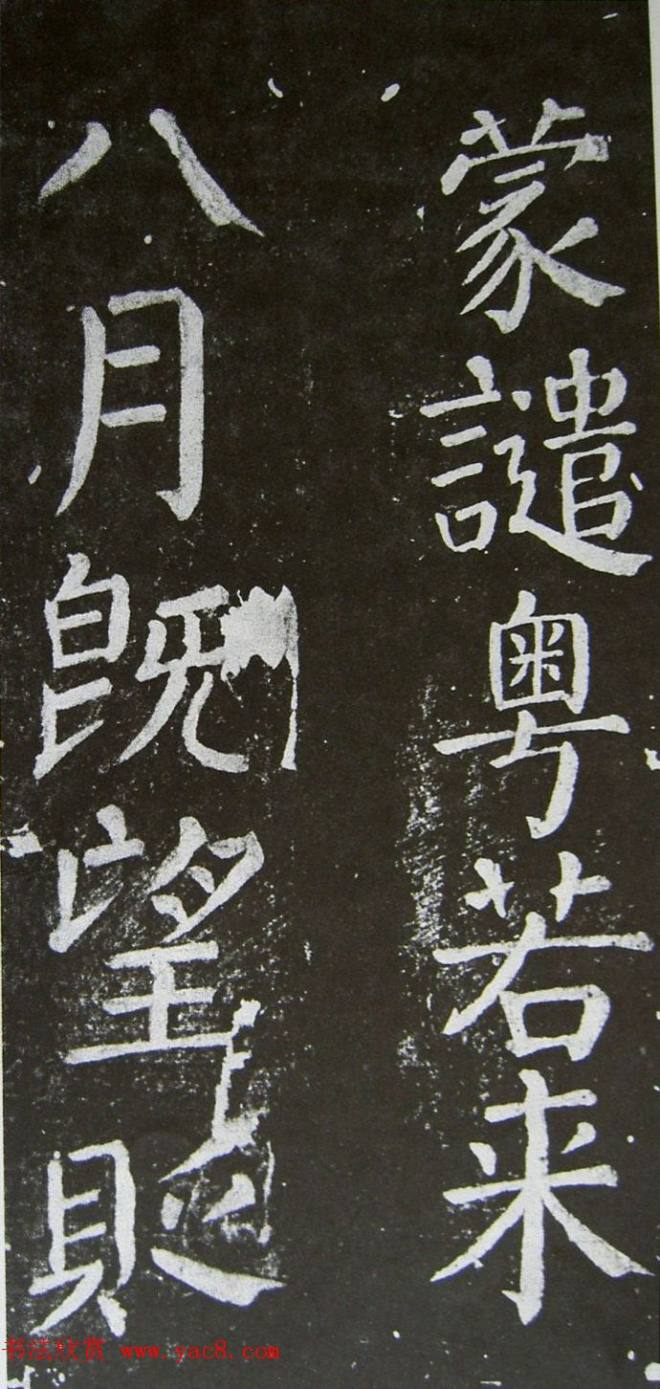 蒙譴粤若来
八月既望貶
书法欣赏 www.yac8.com